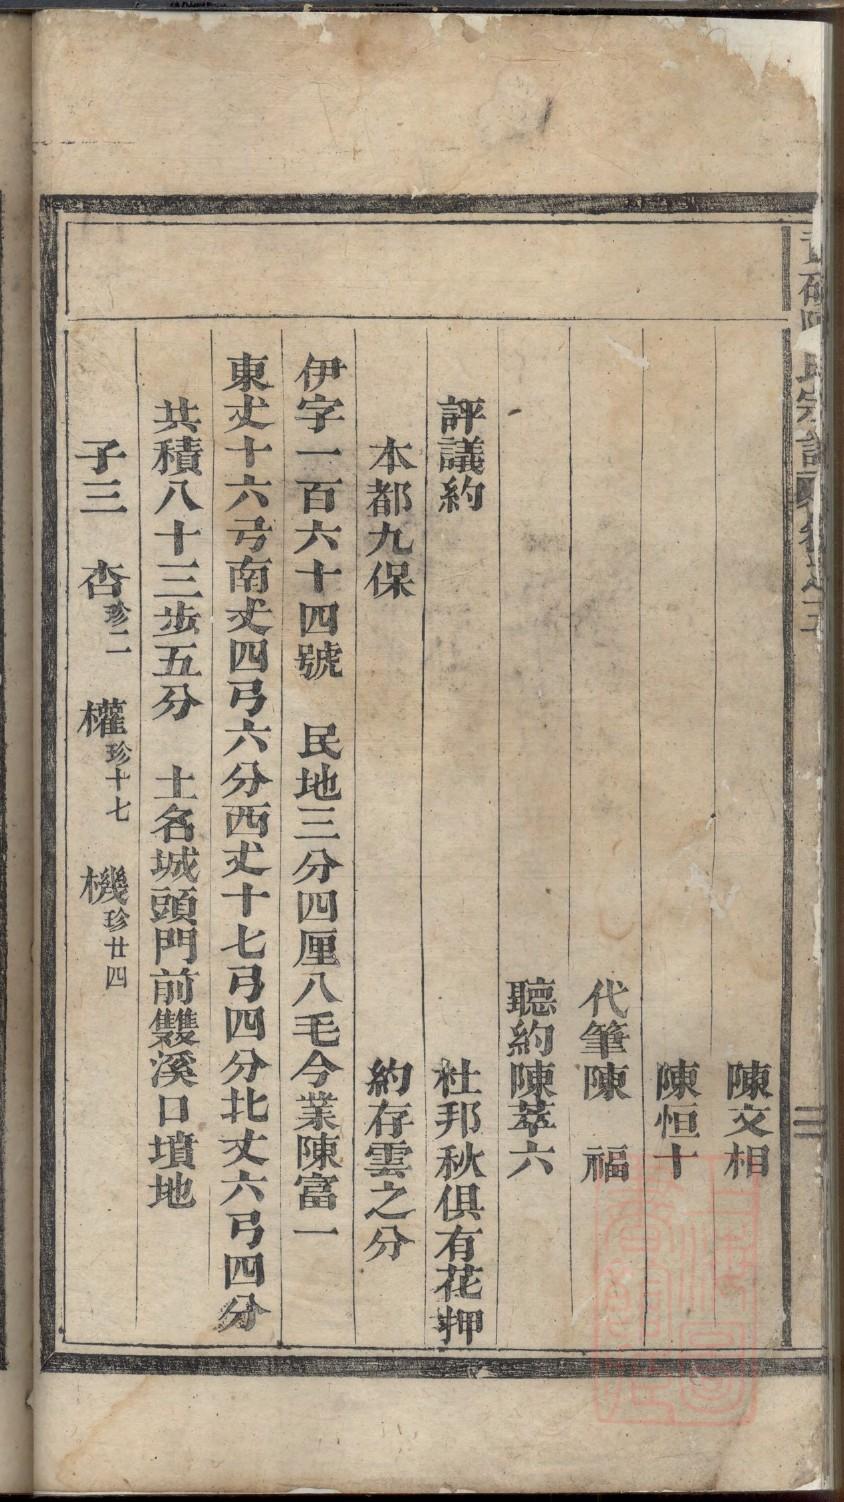 氏宗譜
陳文相
陳恒十
代筆陳　福
聽約陳萃六
評議約　杜邦秋俱有花押
本都九保　約存雲之分
伊字一百六十四號　民地三分四厘八毛今業陳富一
東丈十六弓南丈四弓六分西丈十七弓四分北丈六弓四分
共積八十三步五分　土名城頭門前雙溪口墳地
子三　杏珍二　權珍十七　機珍廿四